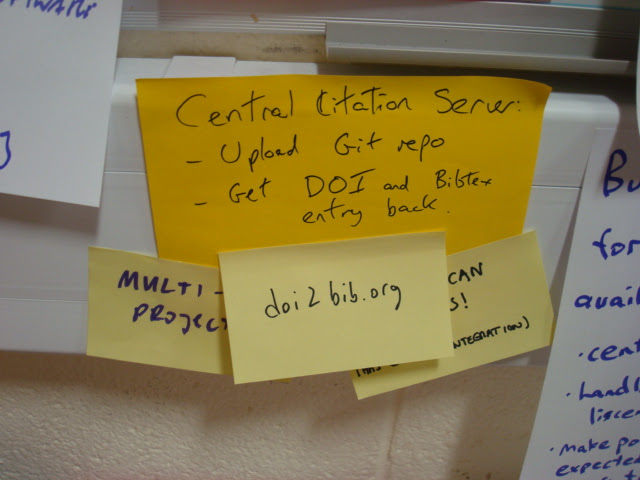 Central Citation Server:
- Upload Git repo
- Get DOI and Bibtex
entry back.
MULTI -
PROJECT
doi2bib.org
CAN
S!
INTEGRATION)
Bu
for
avai
· cent
· handl
· make po
expected